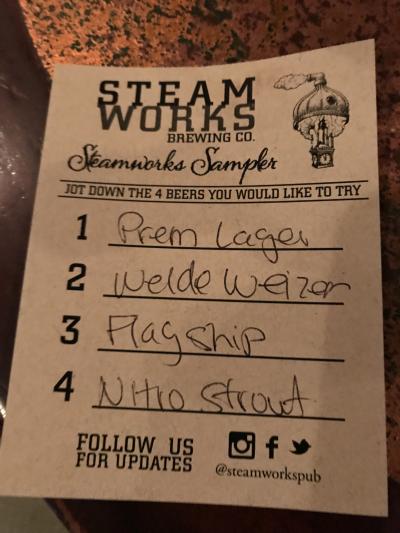 STEAM
WORKS
BREWING CO.
Steamworks Sampler
JOT DOWN THE 4 BEERS YOU WOULD LIKE TO TRY
1 Prem Lager
2 Welde Weizen
3 Flagship
4 Nitro Strout
FOLLOW US
FOR UPDATES
@steamworkspub